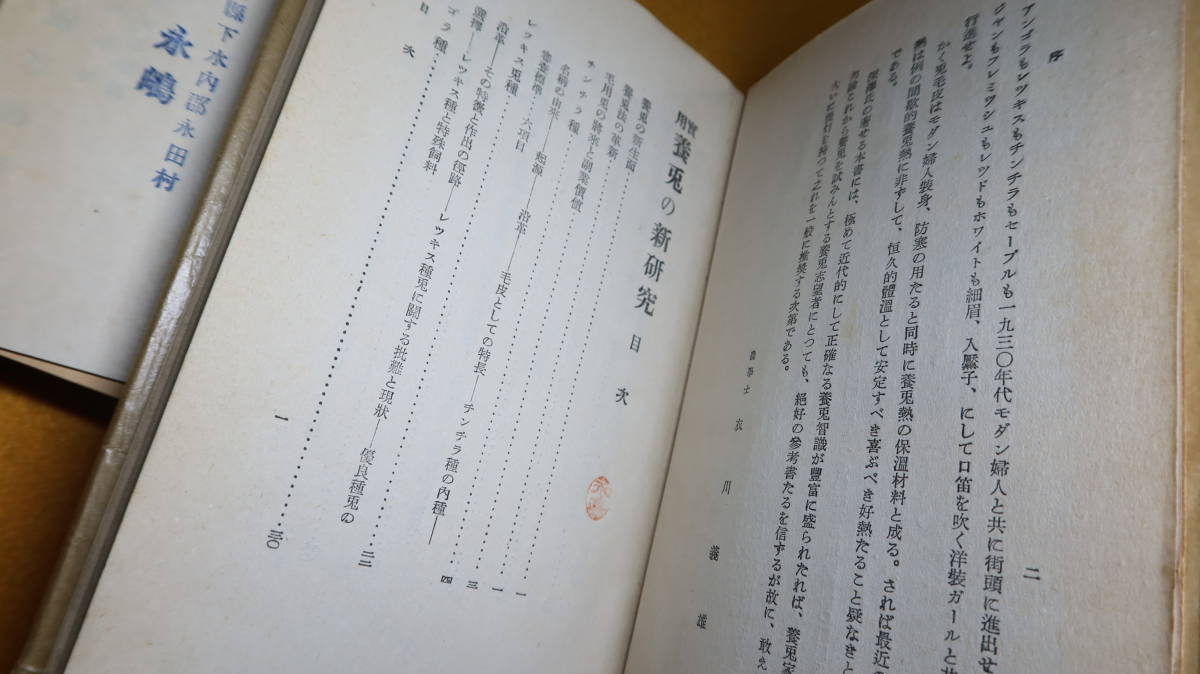 序
二
アンゴラもレツキスもチンチラもセーブルも一九三〇年代モダン婦人と共に街頭に進出せ
ロヤンもフレミツシユもレツドもホワイトも細眉、入黶子、にして口笛を吹く洋裝ガールと共
行進せよ。
かく兎毛皮はモダン婦人裝身、防寒の用たると同時に養兎熱の保溫材料と成る。されば最近の
熱は例の間歇的養兎熱に非ずして、恒久的體溫として安定すべき喜ぶべき好熱たること疑なきと
である。
氏の寄せる本書には、極めて近代的にして正確なる養兎智識が豐富に盛られたれば、養兎家
勿論これから養兎を試みんとする養兎志望者にとつても、絕好の參考書たるを信ずるが故に、敢え
大いに提灯を持つて之れを一般に推奬する次第である。
農學士 衣川義雄
實用 養兎の新研究 目次
養兎の新生面 一
養兎法の革新 一
毛用兎の將來と副業價値 三
チンチラ種 四
名稱の由來──起源──沿革──毛皮としての特長──チンチラ種の內種──
審査標準──六項目
レツキス兎種 二二
沿革──その特徴と作出の徑路──レツキス種兎に關する批難と現狀──優良種兎の
選擇──レツキス種と特殊飼料
ゴラ種 三〇
目次
一
縣下水內郡永田村
永